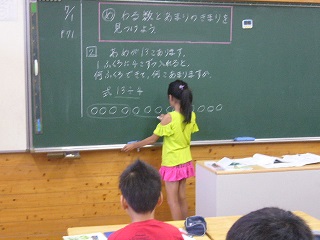 7/1
P.71
め わる数とあまりのきまりを
見つけよう。
2 あめが13こあります。
1ふくろに4こずつ入れると、
何ふくろできて、何こあまりますか。
式 13÷4